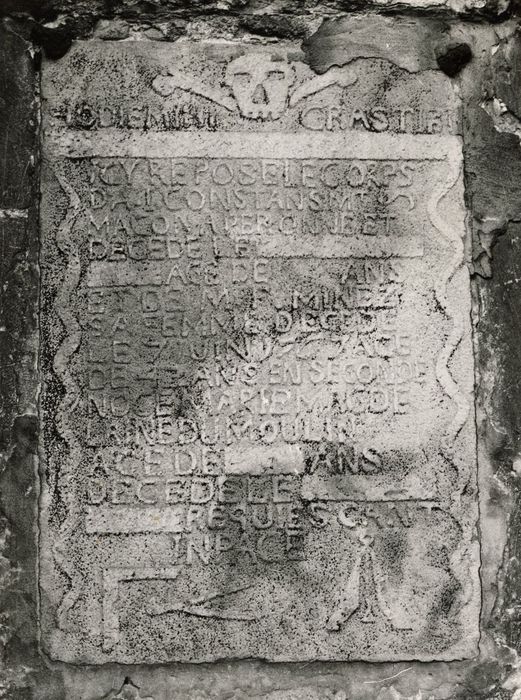 HODIE MIHI CRAS TIBI
ICY REPOSE LE CORPS
MACON A PERONNE ET
DECEDE LE
AGE DE ANS
ET DE
SA FEMME DECEDE
LE 7 IUIN AGE
DE ANS EN SECONDE
NOCE MARIE MAGDE
LRINE DUMOULIN
AGE DE ANS
DECEDE LE
REQUIESCANT
IN PACE